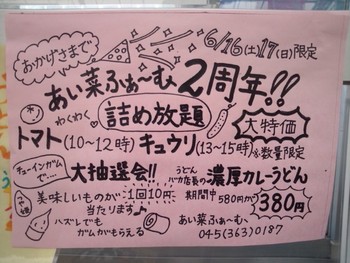 おかげさまで
6/16(土)17(日)限定
あい菜ふぁ〜む、2周年!!
わくわく
詰め放題
大特価
トマト(10〜12時)キュウリ(13〜15時)※数量限定
チューインガムで・・・・
大抽選会!!
うどんバカ店長の濃厚カレーうどん
美味しいものが当たります♪
1回10円
期間中580円が380円
ハズレでもガムがもらえる
あい菜ふぁ〜む、
045(363)0187